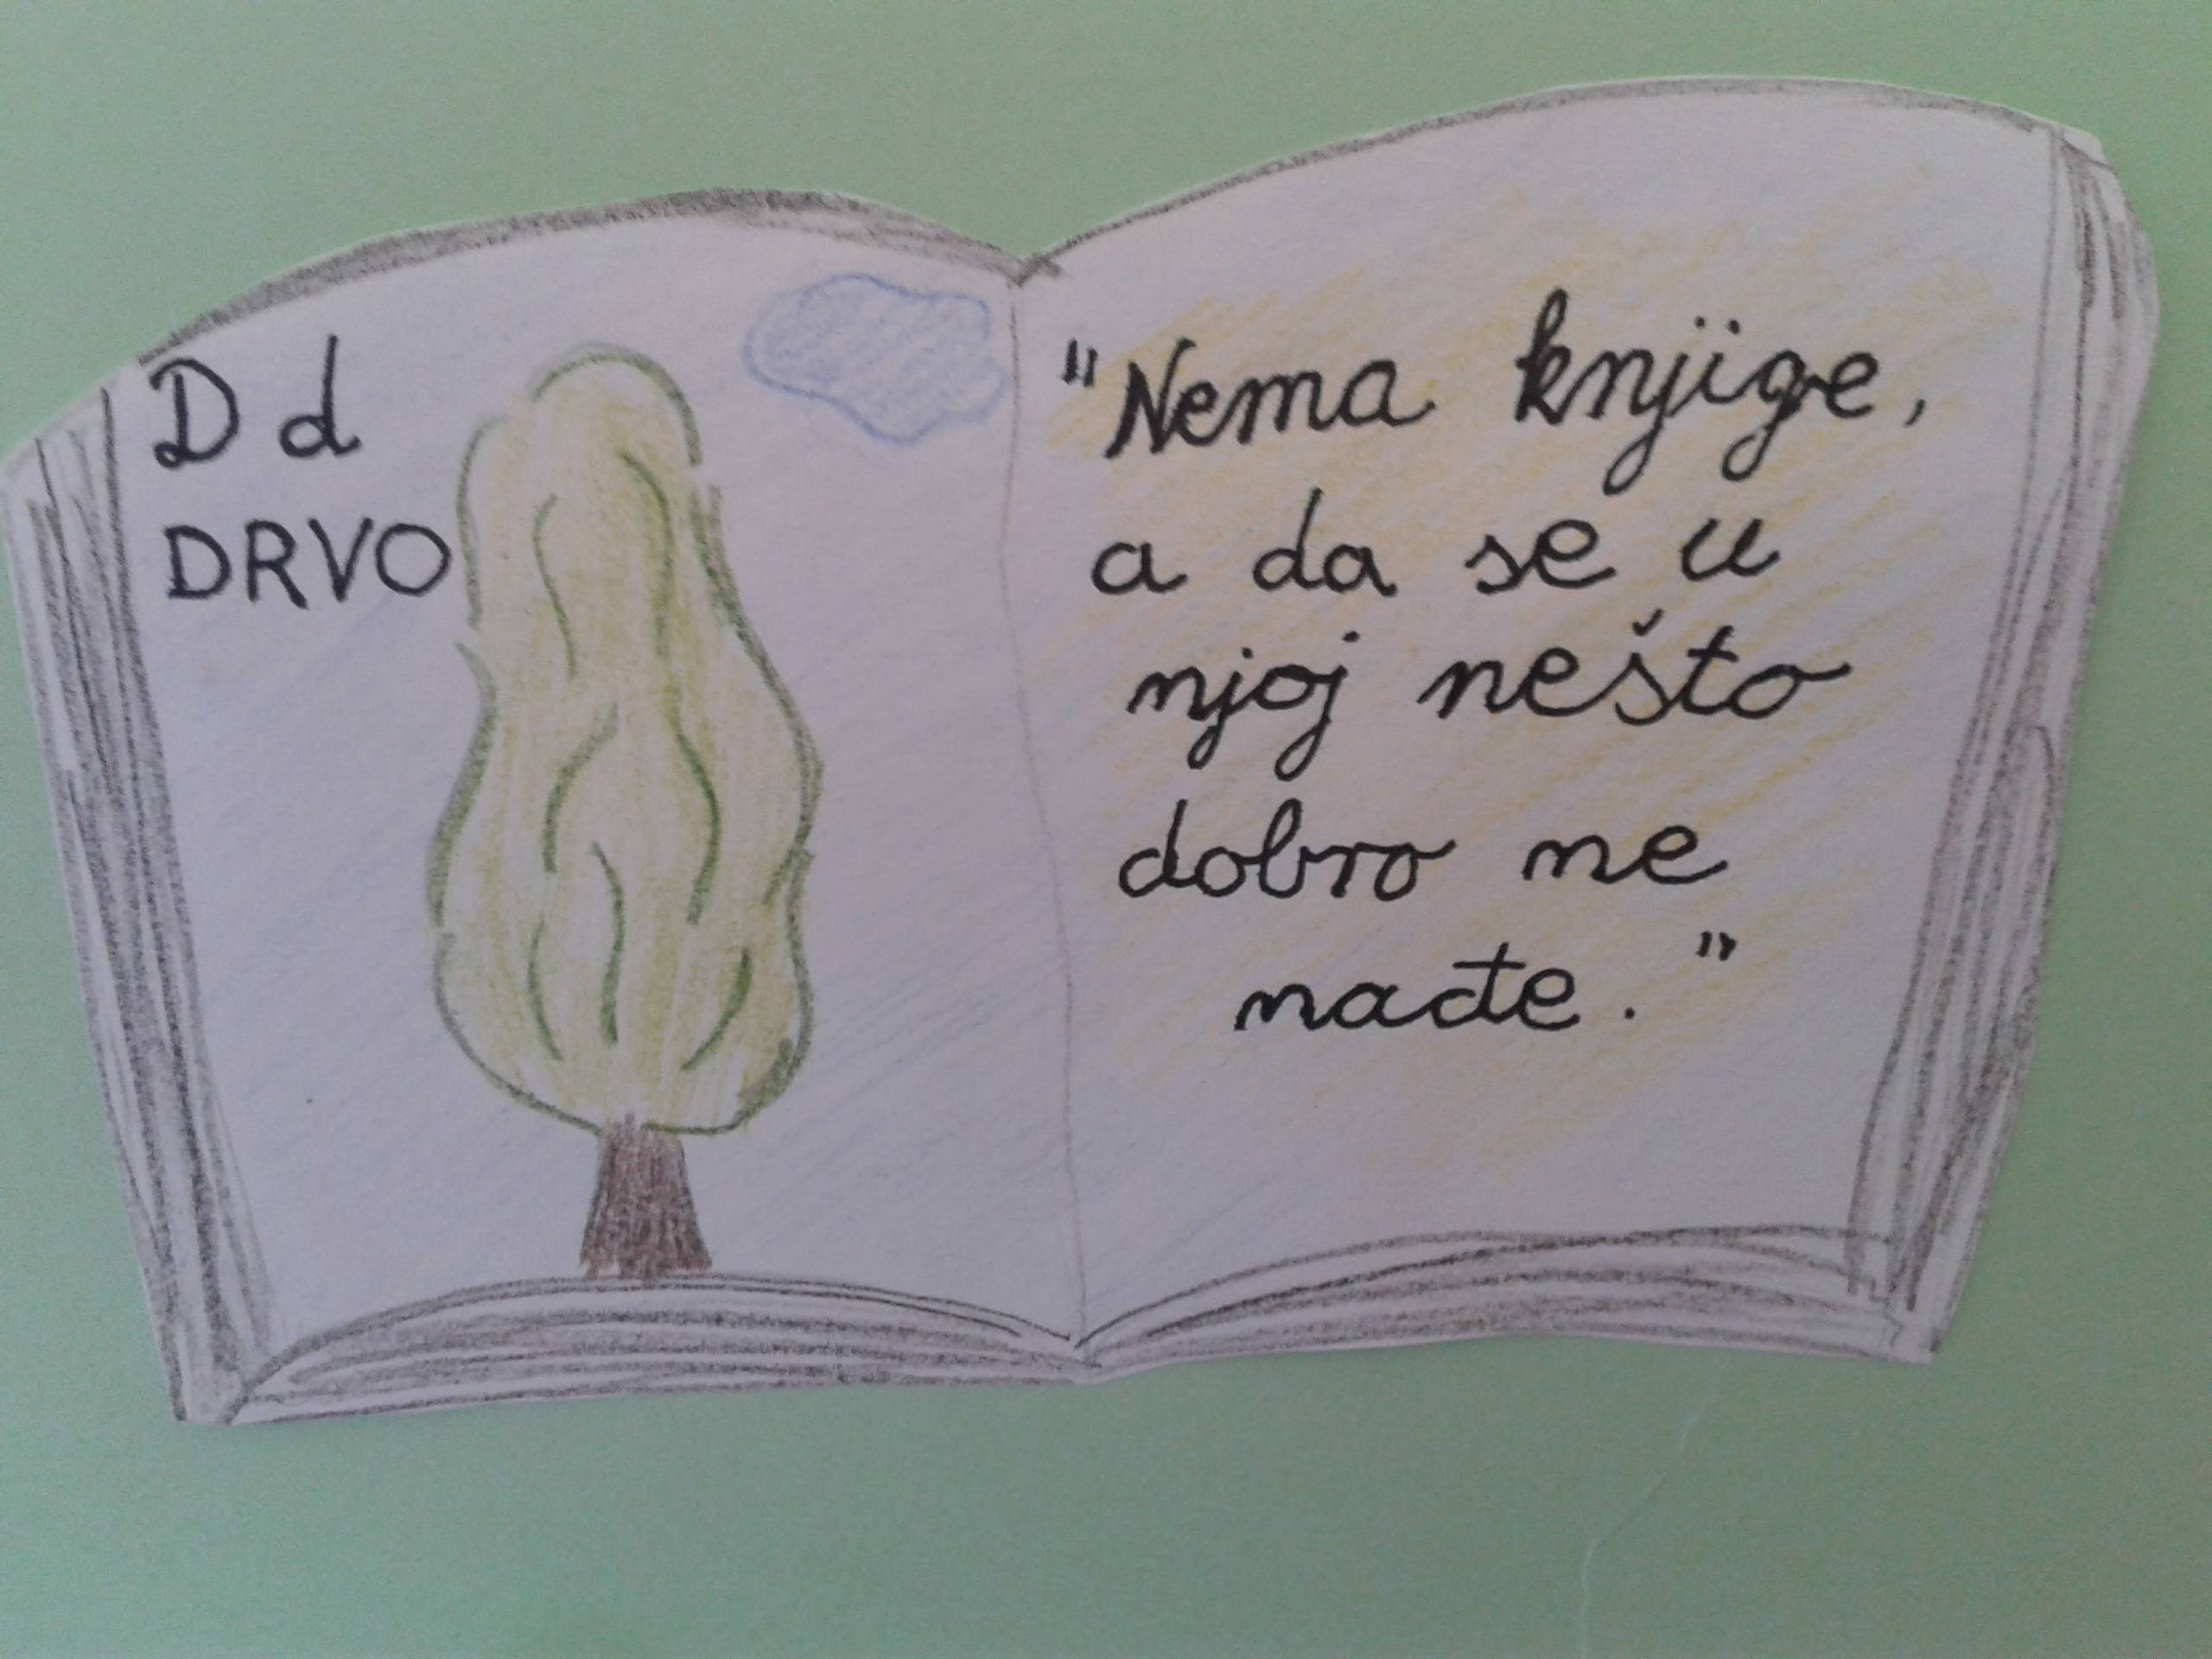 D d
DRVO
"Nema knjige,
a da se u
njoj nešto
dobro ne
nađe."